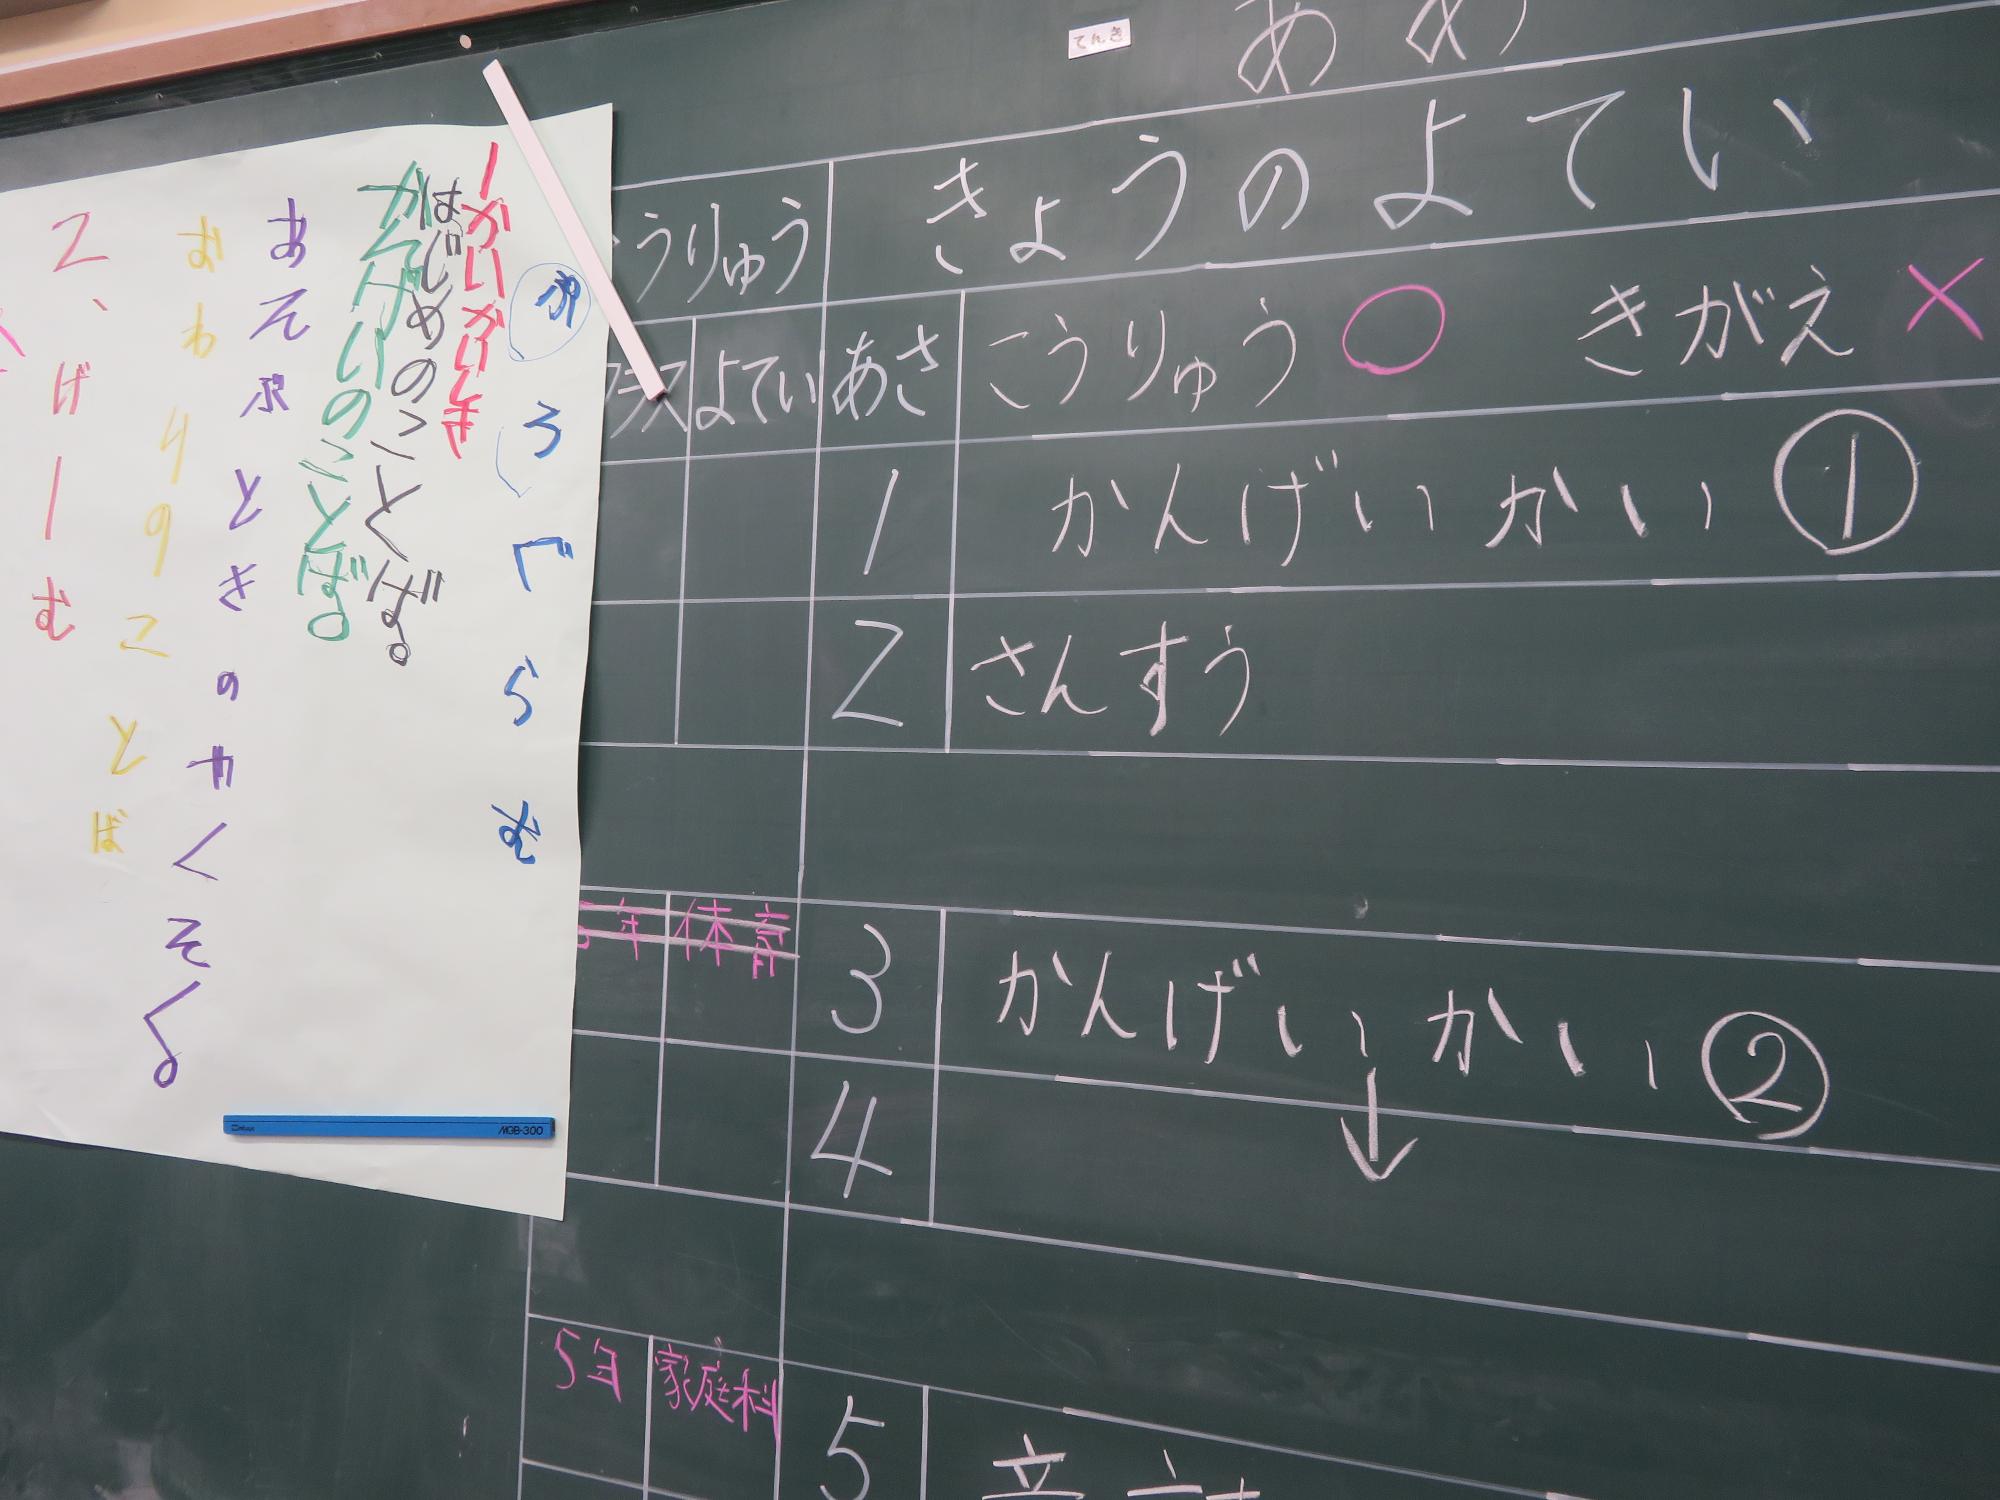 てんき
あめ
きょうのよてい
うりゅう
よてい
あさ
こうりゅう ○ きがえ ×
1 かんげいかい ①
2 さんすう
年 体育
3 かんげいかい ②
4 ↓
5年 家庭科
5
ぷろぐらむ
1かいかいしき
はじめのことば。
かんげいのことば。
あそぶときのやくそく
おわりのことば
2、げーむ
MGB-300